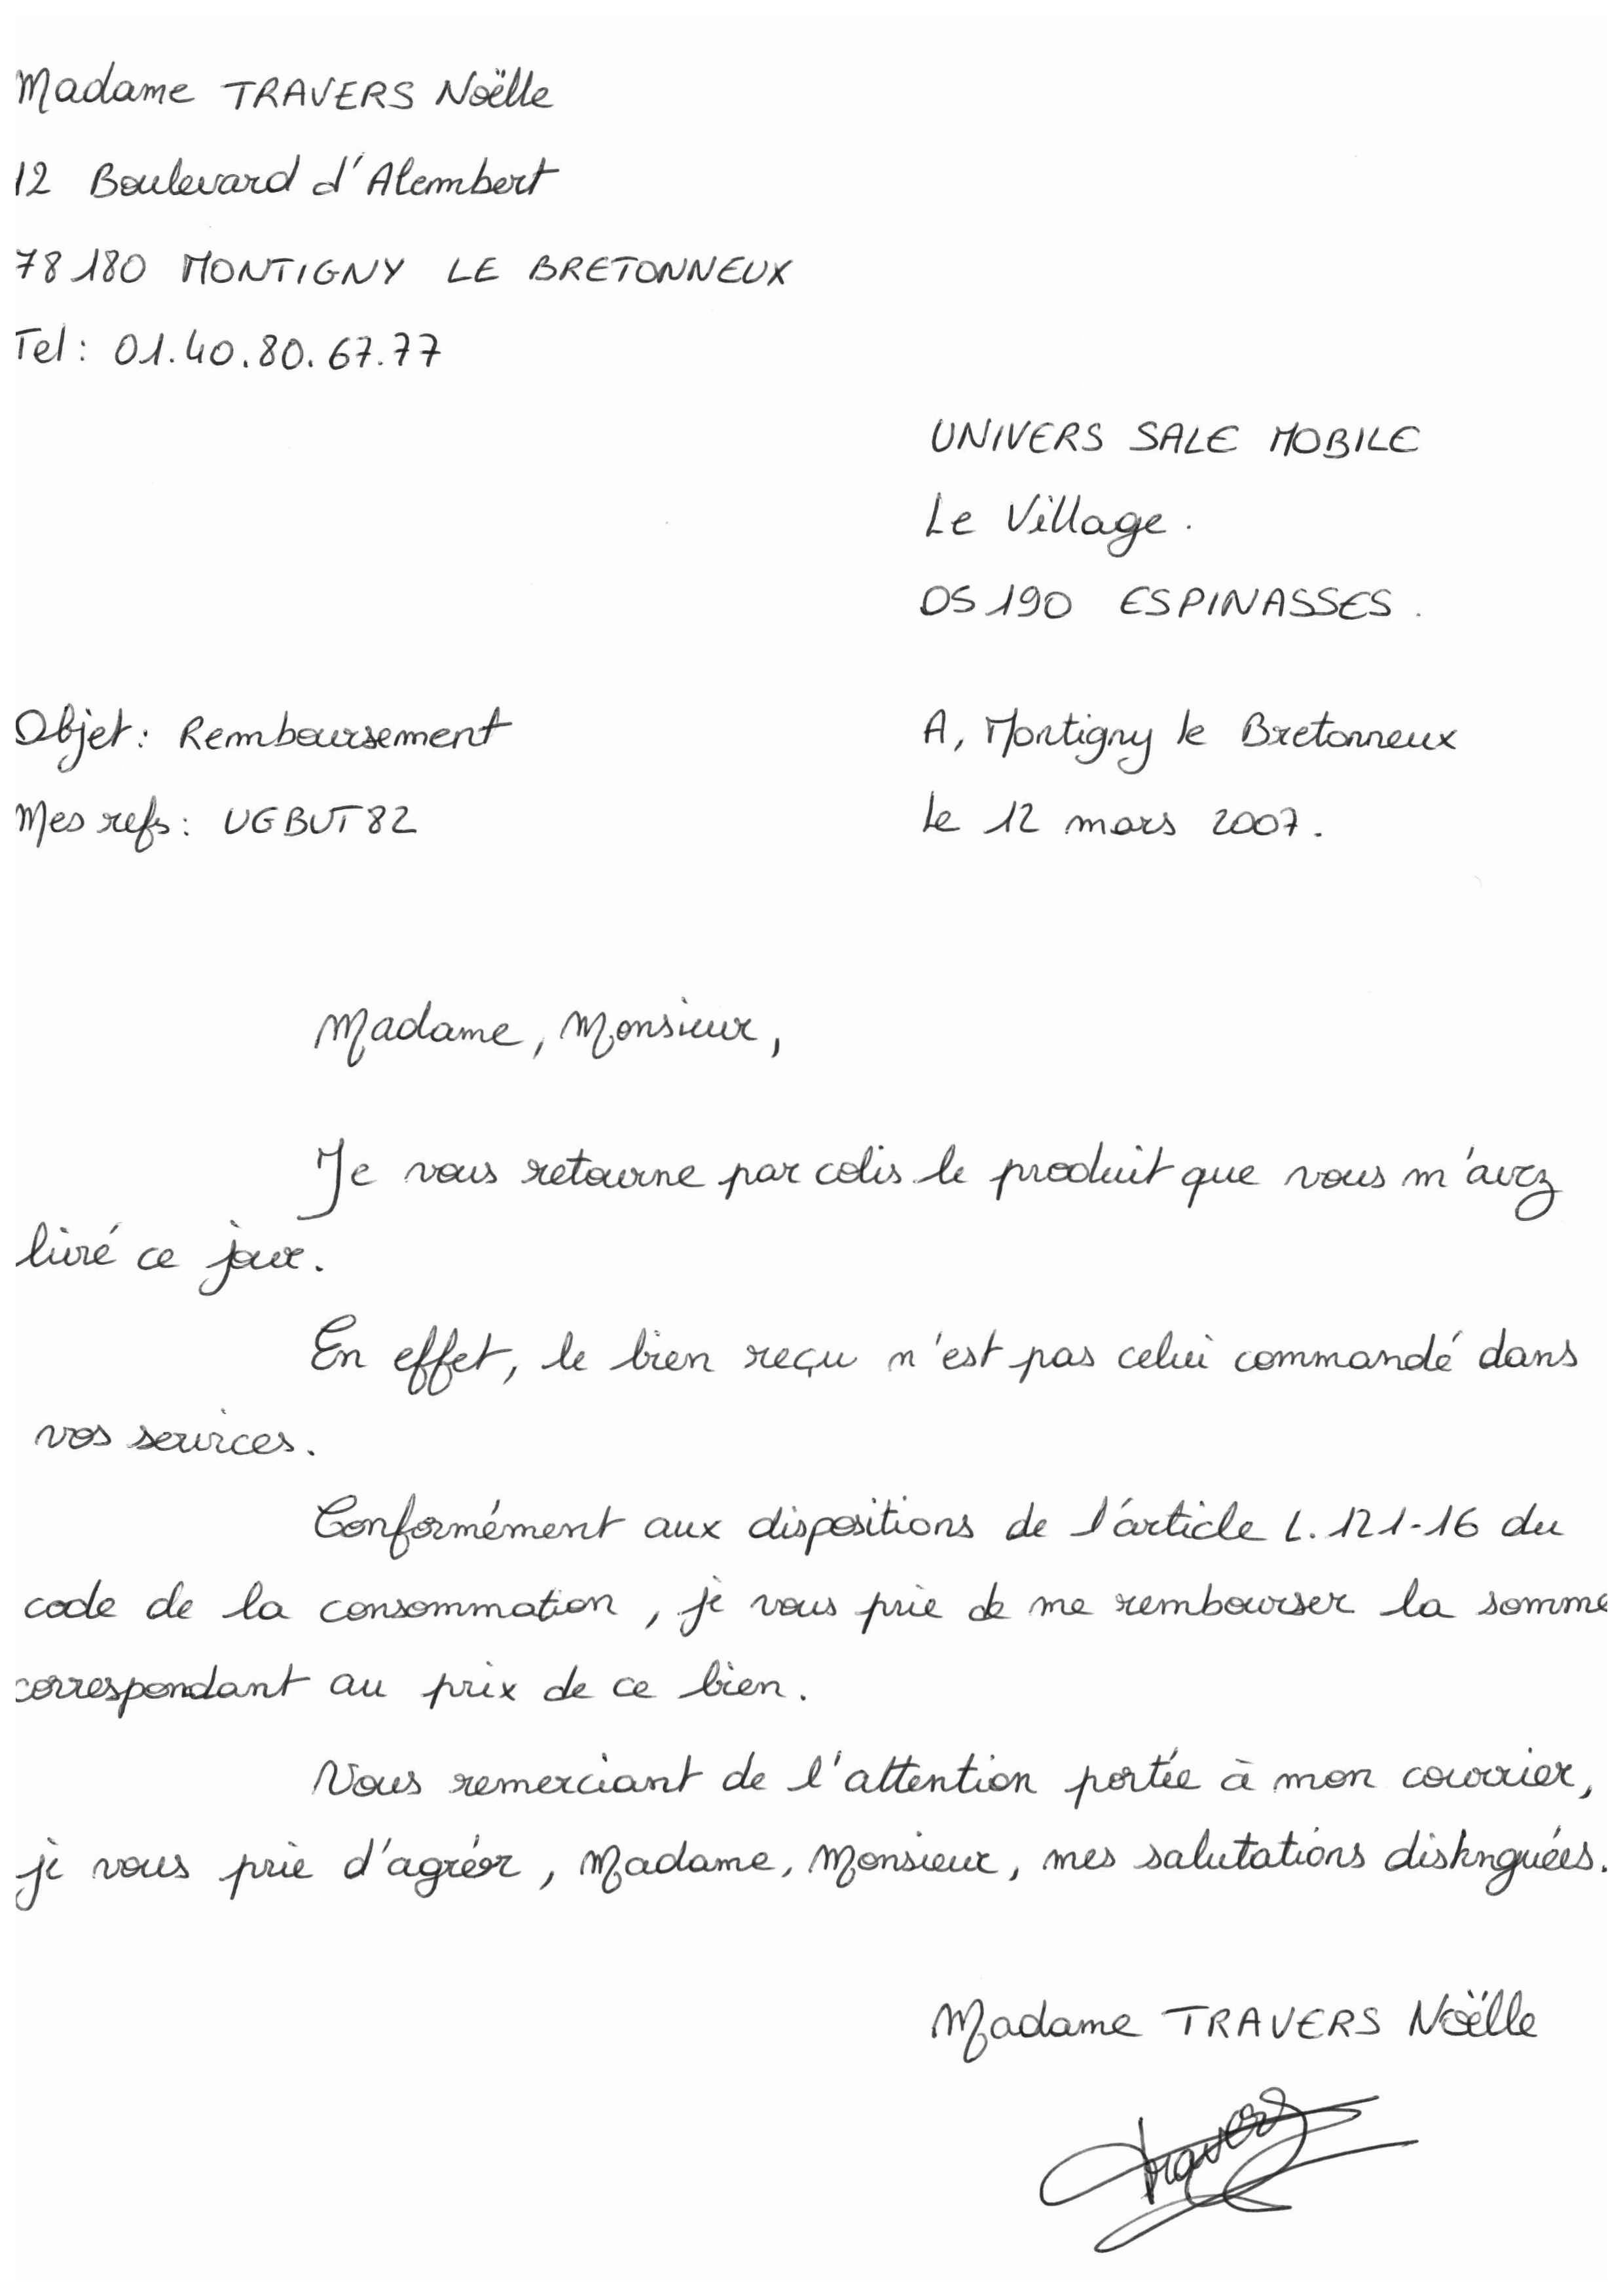 Madame TRAVERS Noëlle
12 Boulevard d'Alembert
78180 MONTIGNY LE BRETONNEUX
Tel : 01.40.80.67.77
UNIVERS SALE MOBILE
Le Village.
05190 ESPINASSES.
Objet : Remboursement
A, Montigny le Bretonneux
Mes refs : UGBUT82
le 12 mars 2007.
Madame, Monsieur,
Je vous retourne par colis le produit que vous m'avez
livré ce jour.
En effet, le bien reçu n'est pas celui commandé dans
vos services.
Conformément aux dispositions de l'article L. 121-16 du
code de la consommation, je vous prie de me rembourser la somme
correspondant au prix de ce bien.
Vous remerciant de l'attention portée à mon courrier,
je vous prie d'agréer, Madame, Monsieur, mes salutations distinguées.
Madame TRAVERS Noëlle
Travers